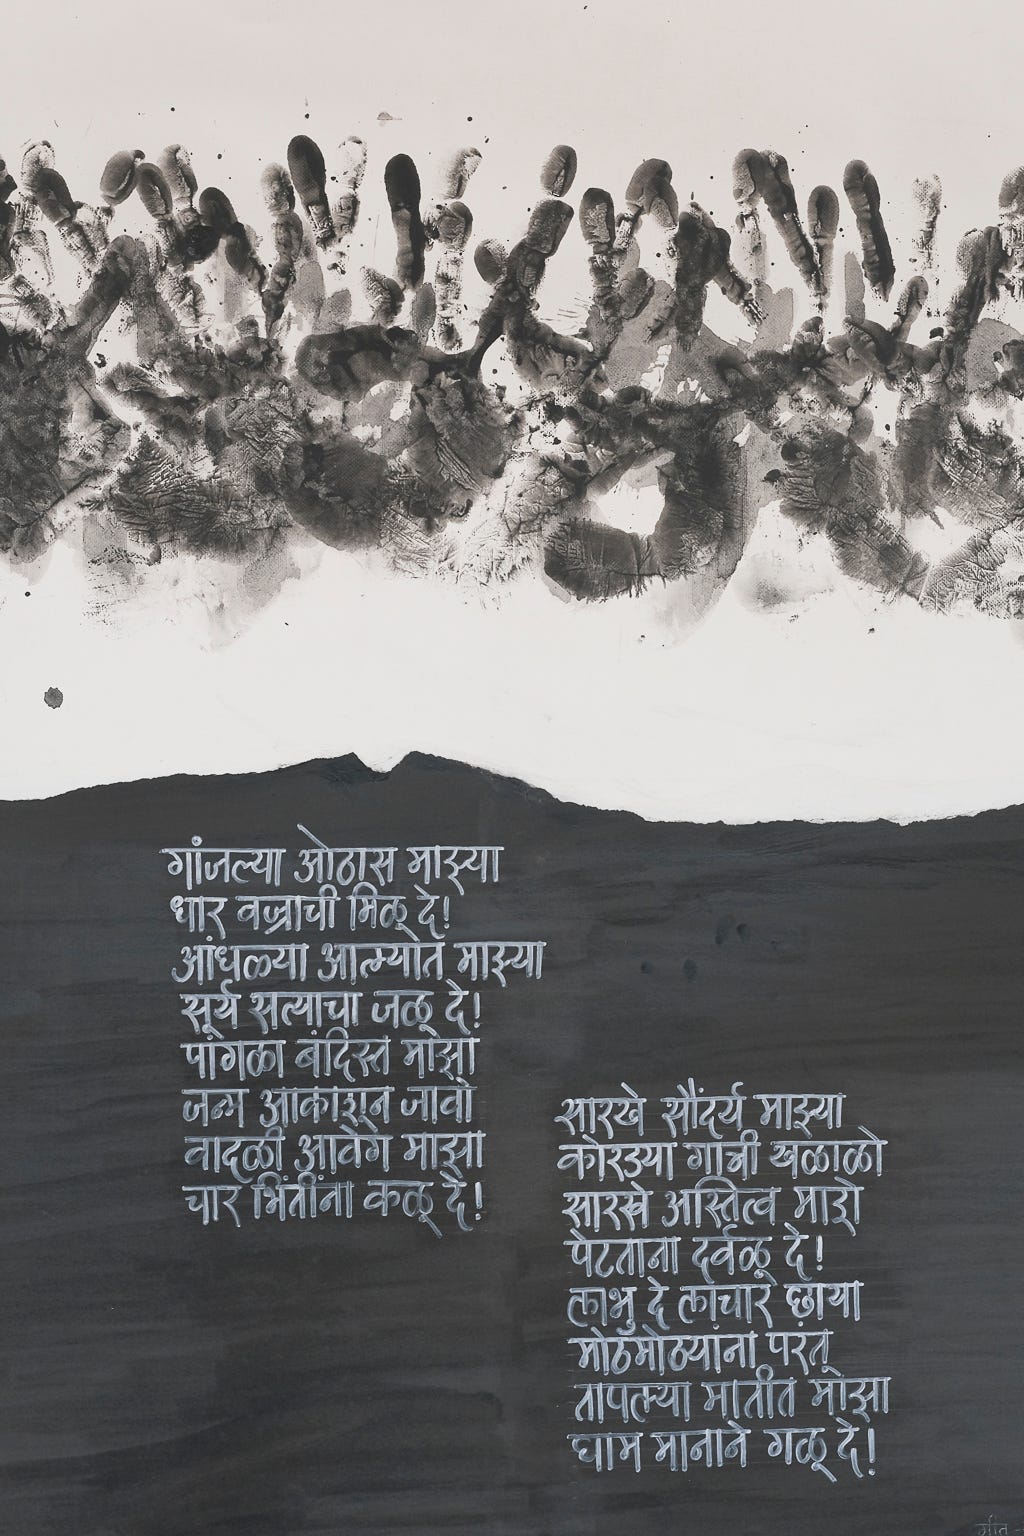 गांजल्या ओठास माझ्या
धार वज्राची मिळू दे!
आंधळ्या आत्म्यात माझ्या
सूर्य सत्याचा जळू दे!
पांगळा बंदिस्त माझा
जन्म आकाशून जावो
वादळी आवेग माझा
चार भिंतींना कळू दे!
सारखे सौंदर्य माझ्या
कोरड्या गात्री खळाळो
सारखे अस्तित्व माझे
पेटताना दर्वळू दे!
लाभु दे लाचार छाया
मोठमोठ्यांना परंतू
तापल्या मातीत माझा
घाम मानाने गळू दे!